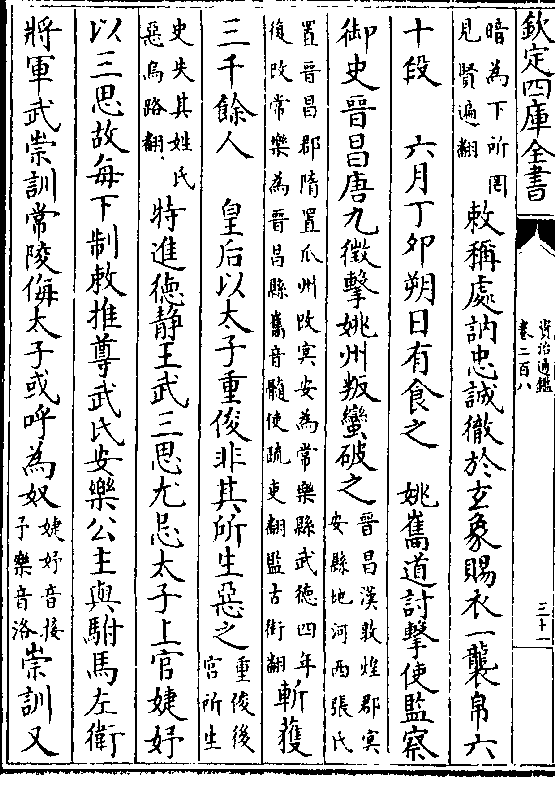 欽定四庫全書
資治通鑑
卷二百八
三十一
暗為下所罔
見賢遍翻
敕稱處訥忠誠徹於玄象賜衣一襲帛六
十段　六月丁卯朔日有食之　姚巂道討擊使監察
御史晉昌唐九徵擊姚州叛蠻破之
晉昌漢敦煌郡㝠
安縣地河西張氏
置晉昌郡隋置瓜州改㝠安為常樂縣武德四年
復改常樂為晉昌縣巂音髓使疏吏翻監古銜翻
斬獲
三千餘人　皇后以太子重俊非其所生惡之
重俊後
宮所生
史失其姓氏
惡烏路翻
特進德靜王武三思尤忌太子上官婕妤
以三思故每下制敕推尊武氏安樂公主與駙馬左衛
將軍武崇訓常陵侮太子或呼為奴
婕妤音接
予樂音洛
崇訓又